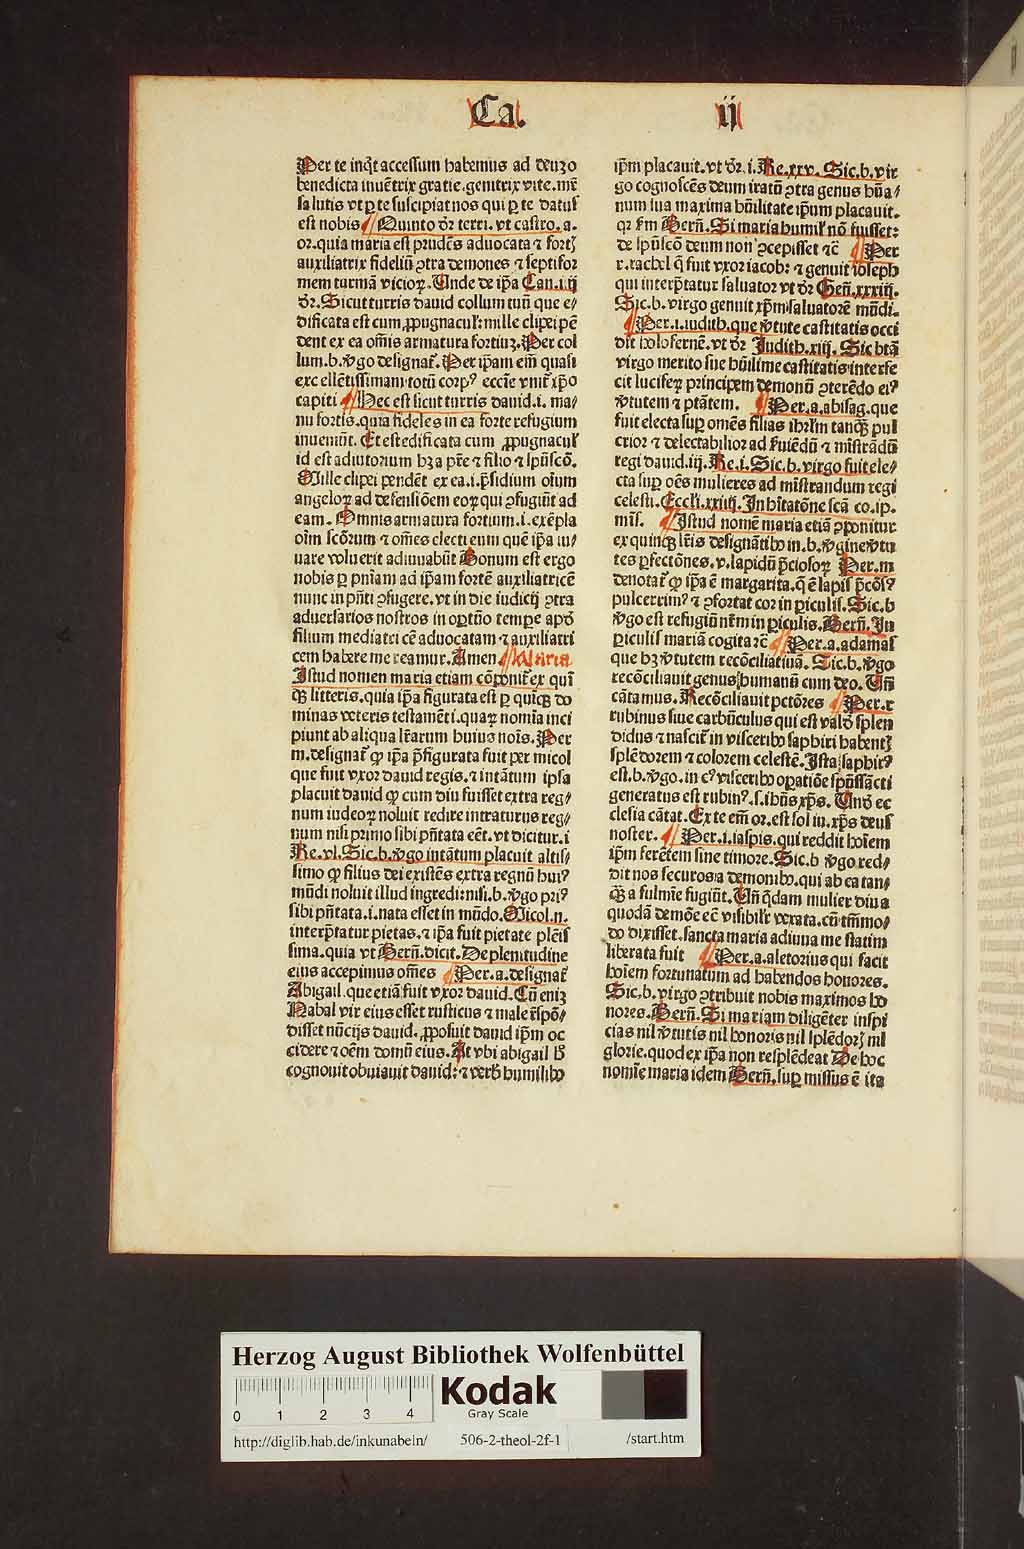 Ca. ij
Per te inq̃t accessum habemus ad deuȝo
benedicta inuẽtrix gratie. genitrix vite. mr̃
salutis vt ꝑ te suscipiat nos qui ꝑ te datus
est nobis ¶ Quinto dr̃ terri. vt castro. a.
or. quia maria est prudẽs aduocata ⁊ fortꝭ
auxiliatrix fideliũ ↄtra demones ⁊ septifor
mem turmã vicioꝝ. Unde de ip̃a Can. iiij
dr̃. Sicut turris dauid collum tuũ que e/
dificata est cum ꝓpugnacul': mille clipei pẽ
dent ex ea om̃is armatura fortiuȝ. Per col
lum. b. v̾go designat̃. Per ip̃am em̃ quasi
excellẽtissimam totũ corpꝰ eccl̃ie vnit̃ xp̃o
capiti ¶ Hec est sicut turris dauid. i. ma/
nu fortis. quia fideles in ea forte refugium
inueniũt. Et est edificata cum ꝓpugnacul'
id est adiutorium hȝ a pr̃e ⁊ filio ⁊ sp̃uscõ.
Mille clipei pendẽt ex ea. i. p̃sidium oĩum
angeloꝝ ad defensiõem eoꝝ qui ↄfugiũt ad
eam. Omnis armatura fortium. i. exẽpla
oĩm scõrum ⁊ om̃es electi eum quẽ ip̃a iu/
uare voluerit adiuuabũt Bonum est ergo
nobis ꝑ pnĩam ad ip̃am fortẽ auxiliatricẽ
nunc in pñti ↄfugere. vt in die iudicij ↄtra
aduersarios nostros in oꝑtũo tempe apd̾
filium mediatricẽ aduocatam ⁊ auxiliatri
cem habere mereamur. Amen ¶ Maria
Istud nomen maria etiam cõponit̃ ex quĩ
qꝫ litteris. quia ip̃a figurata est ꝑ quĩqꝫ do
minas veteris testamẽti. quaꝝ nomĩa inci
piunt ab aliqua lr̃arum huius noĩs. Per
m. designat̃ ꝙ ip̃a p̃figurata fuit per micol
que fuit vxor dauid regis. ⁊ intãtum ipsa
placuit dauid ꝙ cum diu fuisset extra reg/
num iudeoꝝ noluit redire intraturus reg/
num nisi primo sibi pñtata eẽt. vt dicitur. i
Re. vi. Sic. b. v̾go intãtum placuit altis/
simo ꝙ filius dei existẽs extra regnũ huiꝰ
mũdi noluit illud ingredi: nisi. b. v̾go priꝰ
sibi pñtata. i. nata esset in mũdo. Micol. n.
interp̃tatur pietas. ⁊ ip̃a fuit pietate plẽis
sima. quia vt Berñ. dicit. De plenitudine
eius accepimus om̃es ¶ Per. a. designat̃
Abigail. que etiã fuit vxor dauid. Cũ enĩȝ
Nabal vir eius esset rusticus ⁊ male r̃spõ/
disset nũcijs dauid. ꝓposuit dauid ip̃m oc
cidere ⁊ oẽm domũ eius. At vbi abigail h̾
cognouit obuiauit dauid: ⁊ verb̾ humilibꝰ
ip̃m placauit. vt dr̃. i. Re. xxv. Sic. b. vir
go cognoscẽs deum iratũ ↄtra genus hũa/
num sua maxima hũilitate ip̃um placauit.
qr̃ s̾m Berñ. Si maria humil' nõ fuisset:
de sp̃uscõ deum non ↄcepisset ⁊c̃ ¶ Per
r. rachel q̃ fuit vxor iacob: ⁊ genuit ioseph
qui interp̃tatur saluator vt dr̃ Geñ. xxxiij.
Sic. b. virgo genuit xp̃m saluatorẽ mũdi.
¶ Per. i. iudith. que v̾tute castitatis occi
dit holofernẽ. vt dr̃ Judith. xiij. Sic bt̃a
virgo merito sue hũilime castitatis interfe
cit luciferꝝ principem demonũ ↄterẽdo eiꝰ
v̾tutem ⁊ ptãtem. ¶ Per. a. abisag. que
fuit electa suꝑ om̃es filias ihrl̃m tanqꝫ pul
crior ⁊ delectabilior ad s̾uiẽdũ ⁊ mĩstrãdũ
regi dauid. iij. Re. i. Sic. b. virgo fuit ele/
cta suꝑ oẽs mulieres ad mĩstrandum regi
celesti. Eccl̃i. xxiiij. In hĩtatõne scã co. ip.
mĩs. ¶ Istud nomẽ maria etiã ↄponitur
ex quinqꝫ lr̃is designãtibꝰ in. b. v̾gine v̾tu
tes ꝑfectõnes. v. lapidũ p̃ciosoꝝ Per. m
denotat̃ ꝙ ip̃a ẽ margarita. q̃ ẽ lapis p̃cõsꝰ
pulcerrimꝰ ⁊ ↄfortat cor in ꝑiculis. Sic. b
v̾go est refugiũ nr̃m in ꝑiculis. Berñ. In
ꝑiculis mariã cogita ⁊c̃ ¶ Per. a. adamas
que hȝ v̾tutem recõciliatiuã. Sic. b. v̾go
recõciliauit genus humanũ cum deo. Uñ
cãtamus. Recõciliauit pctõres ¶ Per. r
rubinus siue carbũculus qui est vald̾ splen
didus ⁊ nascit̃ in visceribꝰ saphiri habentꝭ
splẽdorem ⁊ colorem celestẽ. Ista saphirꝰ
est. b. v̾go. in cꝰ visceribꝰ oꝑatiõe sp̃ussãcti
generatus est rubinꝰ. s. ihũs xp̃s. Und̾ ec
clesia cãtat. Ex te em̃ or. est sol iu. xp̃s deus
noster. ¶ Per. i. iaspis. qui reddit hoĩem
ip̃m ferẽtem sine timore. Sic. b v̾go red/
dit nos securos a demonibꝰ. qui ab ea tan/
qꝫ a fulmĩe fugiũt. Uñ q̃dam mulier diu a
quodã demõe eẽt visibil'r vexata. cũ tm̃mo/
do dixisset. sancta maria adiuua me statim
liberata fuit ¶ Per. a. aletorius qui facit
hoĩem fortunatum ad habendos honores.
Sic. b. virgo ↄtribuit nobis maximos ho
nores. Berñ. Si mariam diligẽter inspi
cias nil v̾tutis nil honoris nil splẽdorꝭ nil
glorie. quod ex ip̃a non resplẽdeat De hoc
nomĩe maria idem Berñ. suꝑ missus ẽ ita
Herzog August Bibliothek Wolfenbüttel
0 1 2 3 4
Kodak
Gray Scale
http://diglib.hab.de/inkunabeln/ 506-2-theol-2f-1 /start.htm